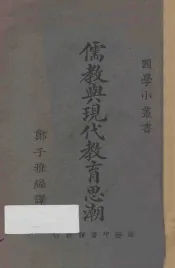 國學小叢書
儒教與現代教育思潮
鄭子雅編譯